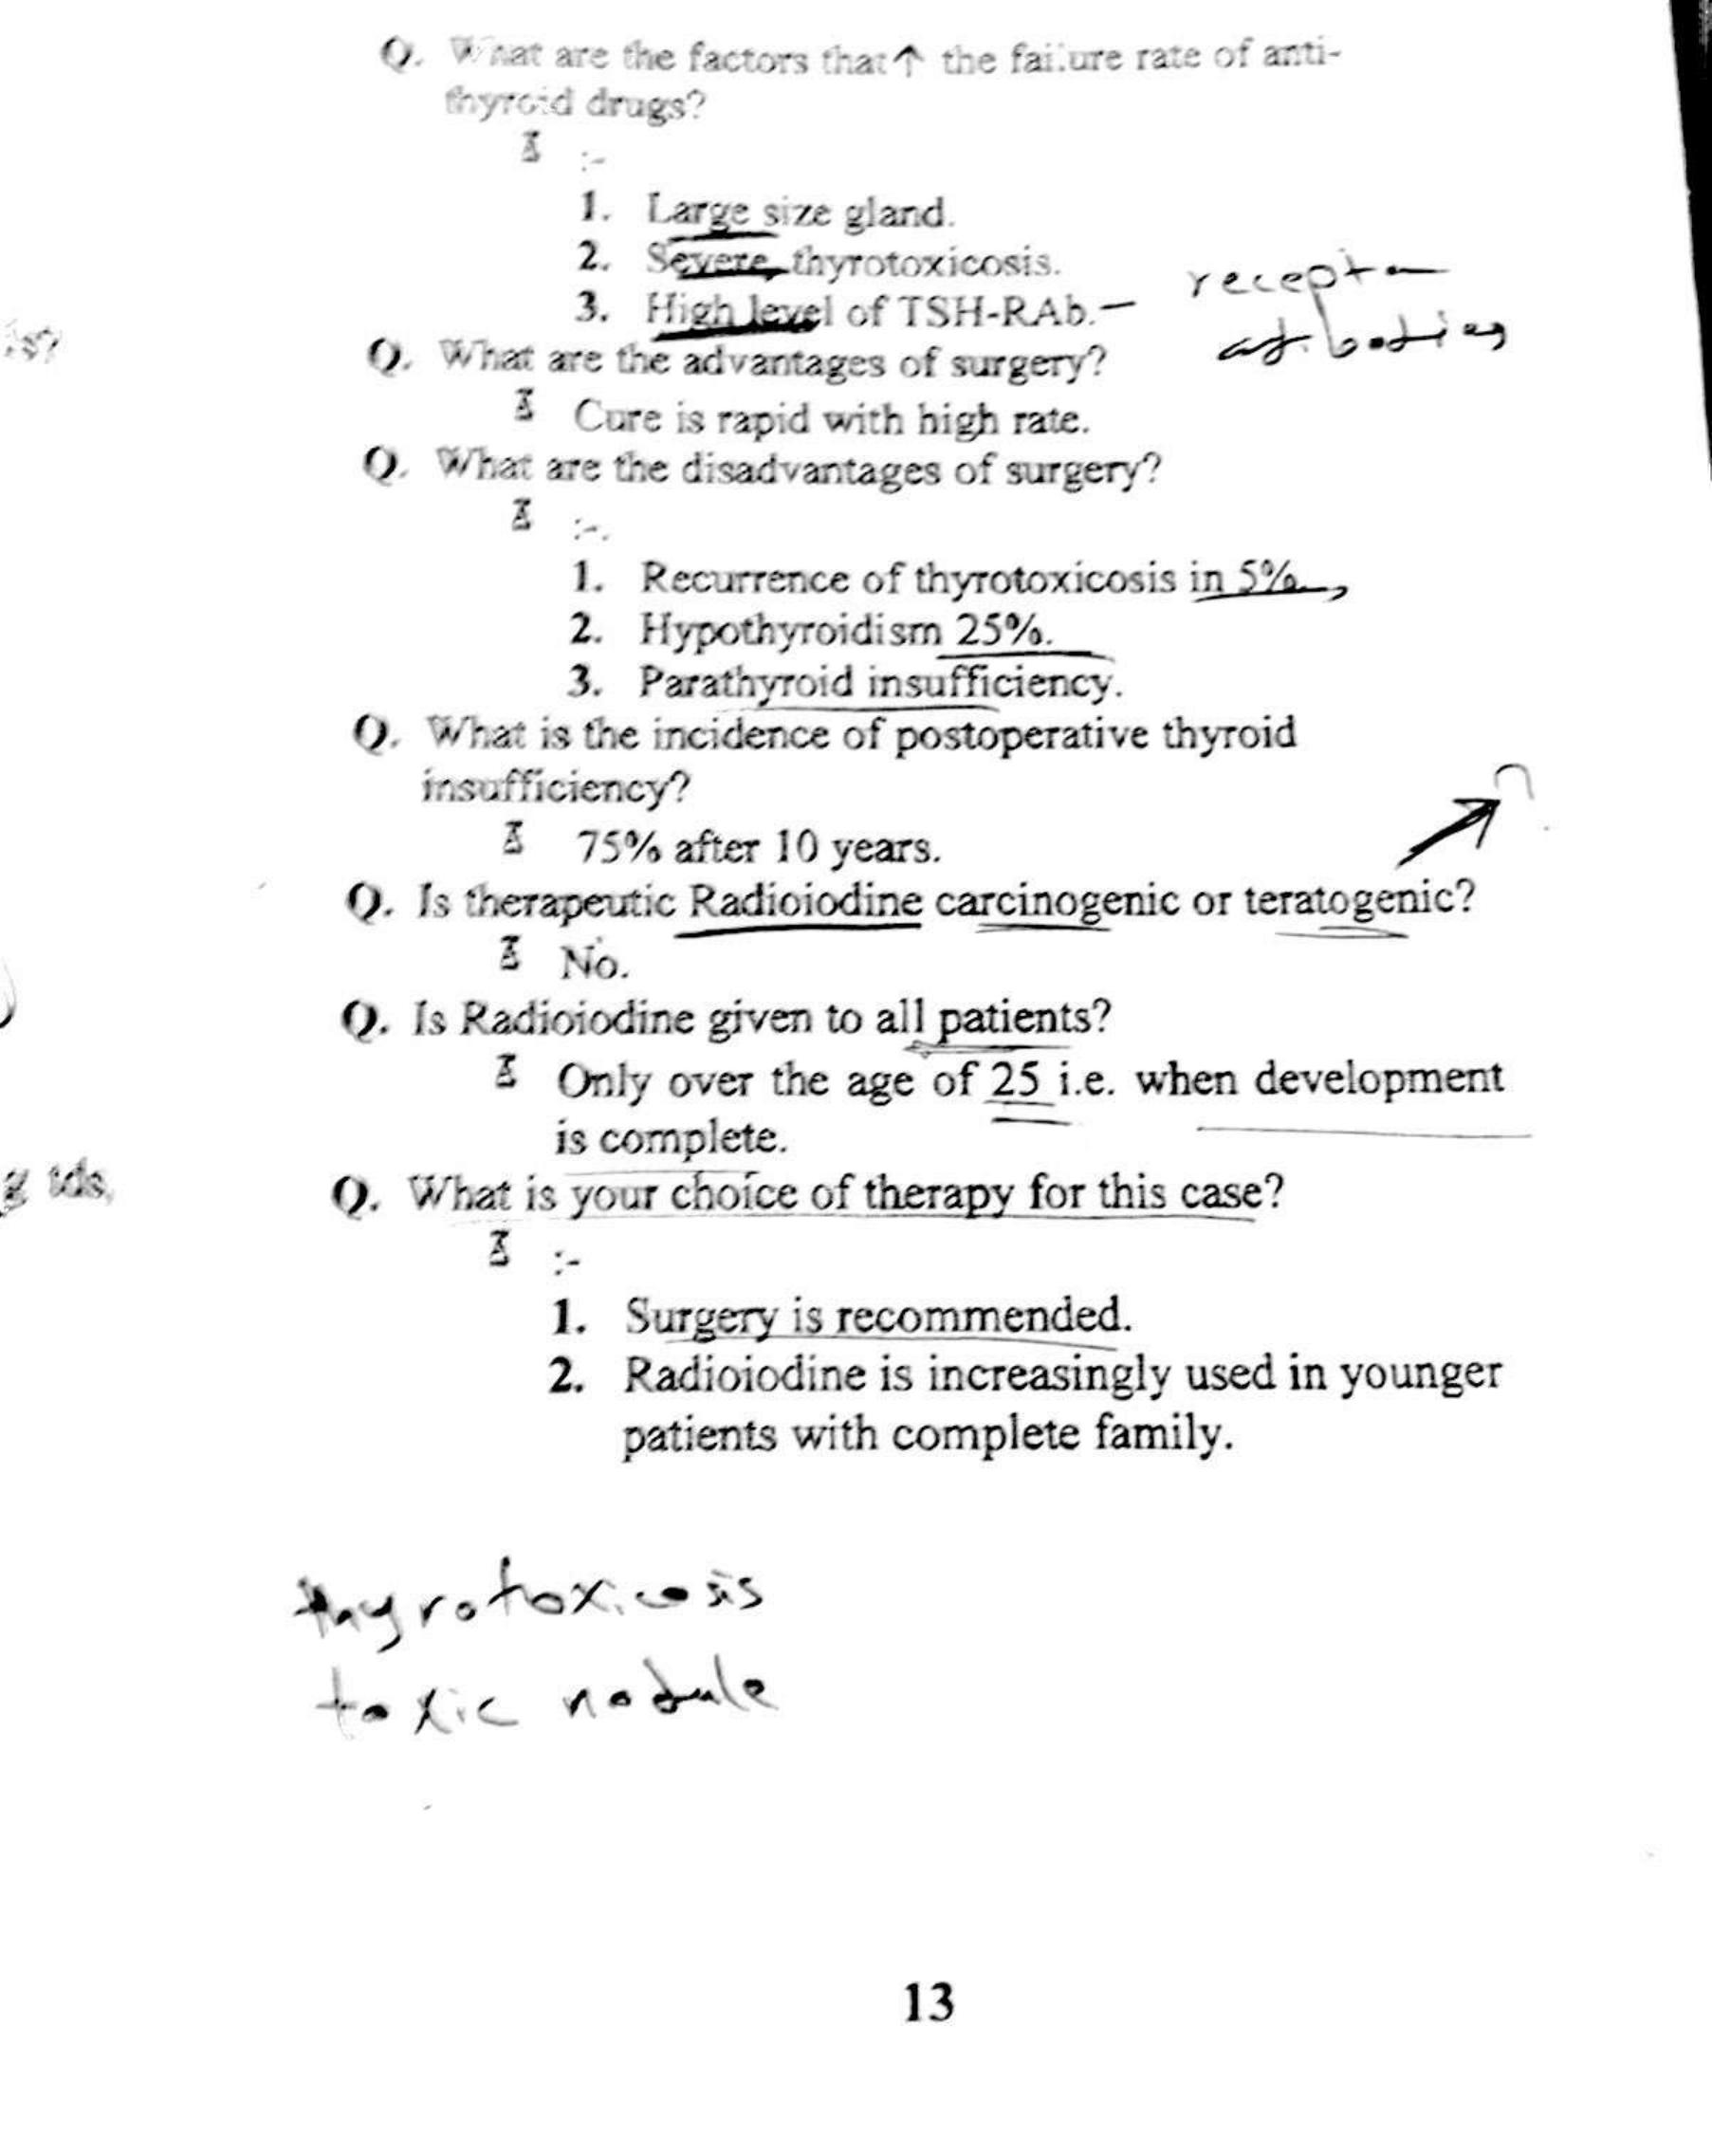 Q. What are the factors that ↑ the failure rate of anti-
thyroid drugs?
:-
1. Large size gland.
2. Severe thyrotoxicosis.
3. High level of TSH-RAb. – receptor
antibodies
is?
Q. What are the advantages of surgery?
Cure is rapid with high rate.
Q. What are the disadvantages of surgery?
:-.
1. Recurrence of thyrotoxicosis in 5%,
2. Hypothyroidism 25%.
3. Parathyroid insufficiency.
Q. What is the incidence of postoperative thyroid
insufficiency?
75% after 10 years.
Q. Is therapeutic Radioiodine carcinogenic or teratogenic?
No.
Q. Is Radioiodine given to all patients?
Only over the age of 25 i.e. when development
is complete.
g tds,
Q. What is your choice of therapy for this case?
:-
1. Surgery is recommended.
2. Radioiodine is increasingly used in younger
patients with complete family.
thyrotoxicosis
toxic nodule
13